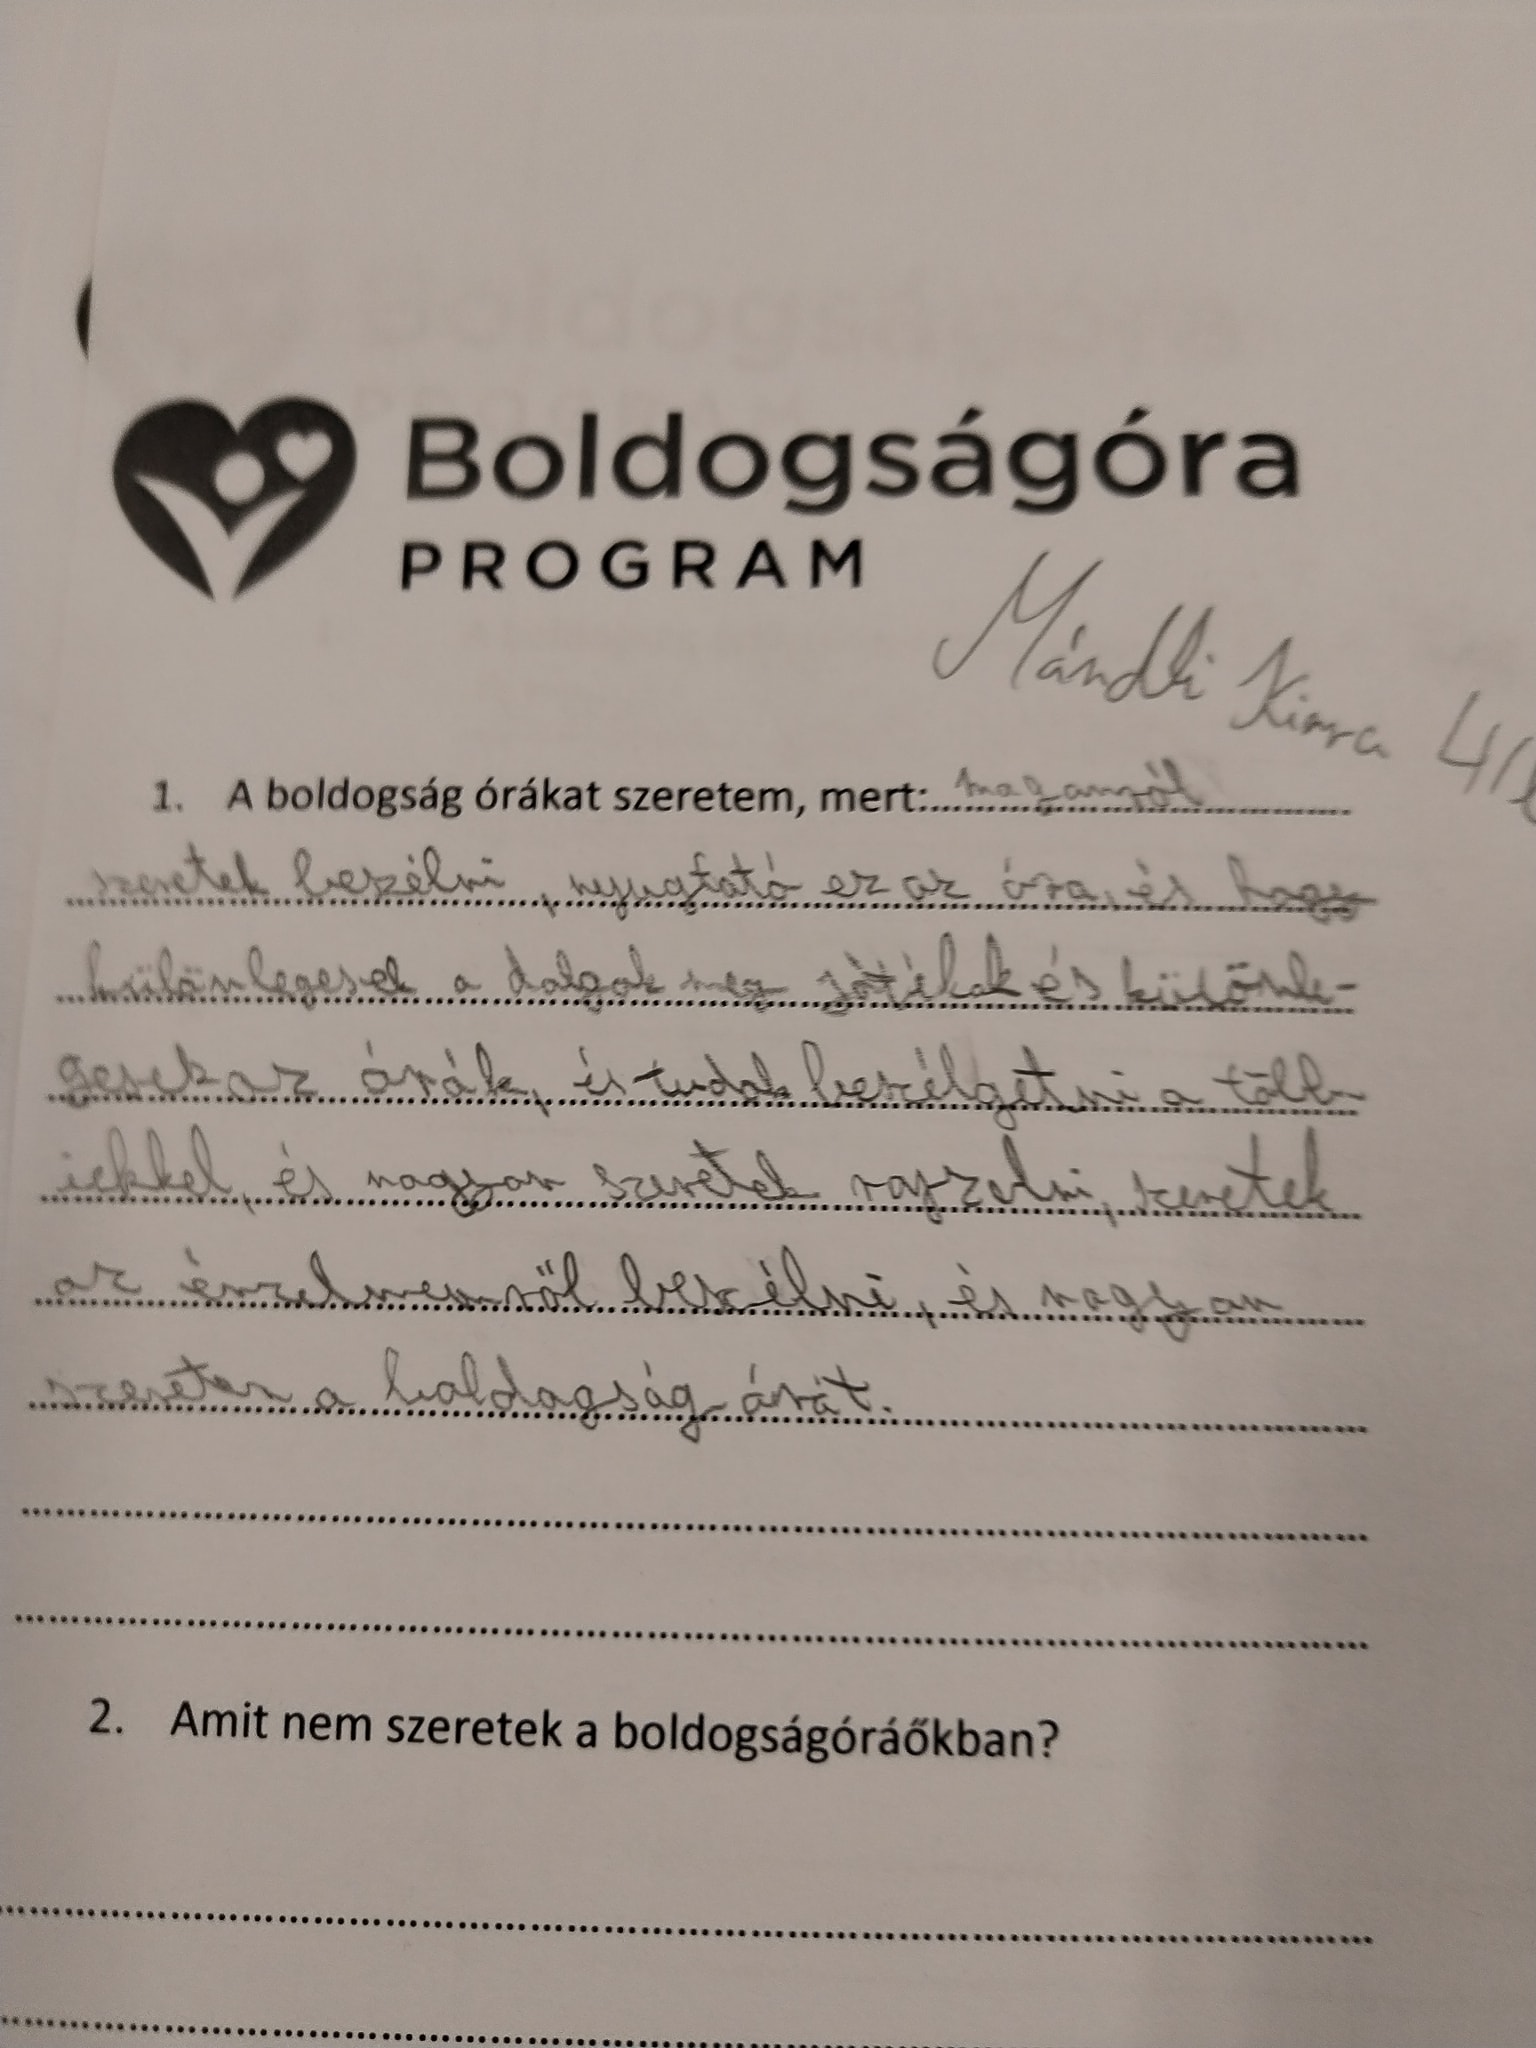 Boldogságóra
PROGRAM
Mándli Kinra 4/
1. A boldogság órákat szeretem, mert: magamról
szeretek beszélni, nyugtató ez az óra, és hogy
különlegesek a dalgok meg játékok és különle-
gesek az órák, és tudok beszélgetni a több-
iekkel, és nagyon szeretek rajzolni, szeretek
az érzelmemről beszélni, és nagyon
szeretem a boldogság órát.
2. Amit nem szeretek a boldogságóráőkban?